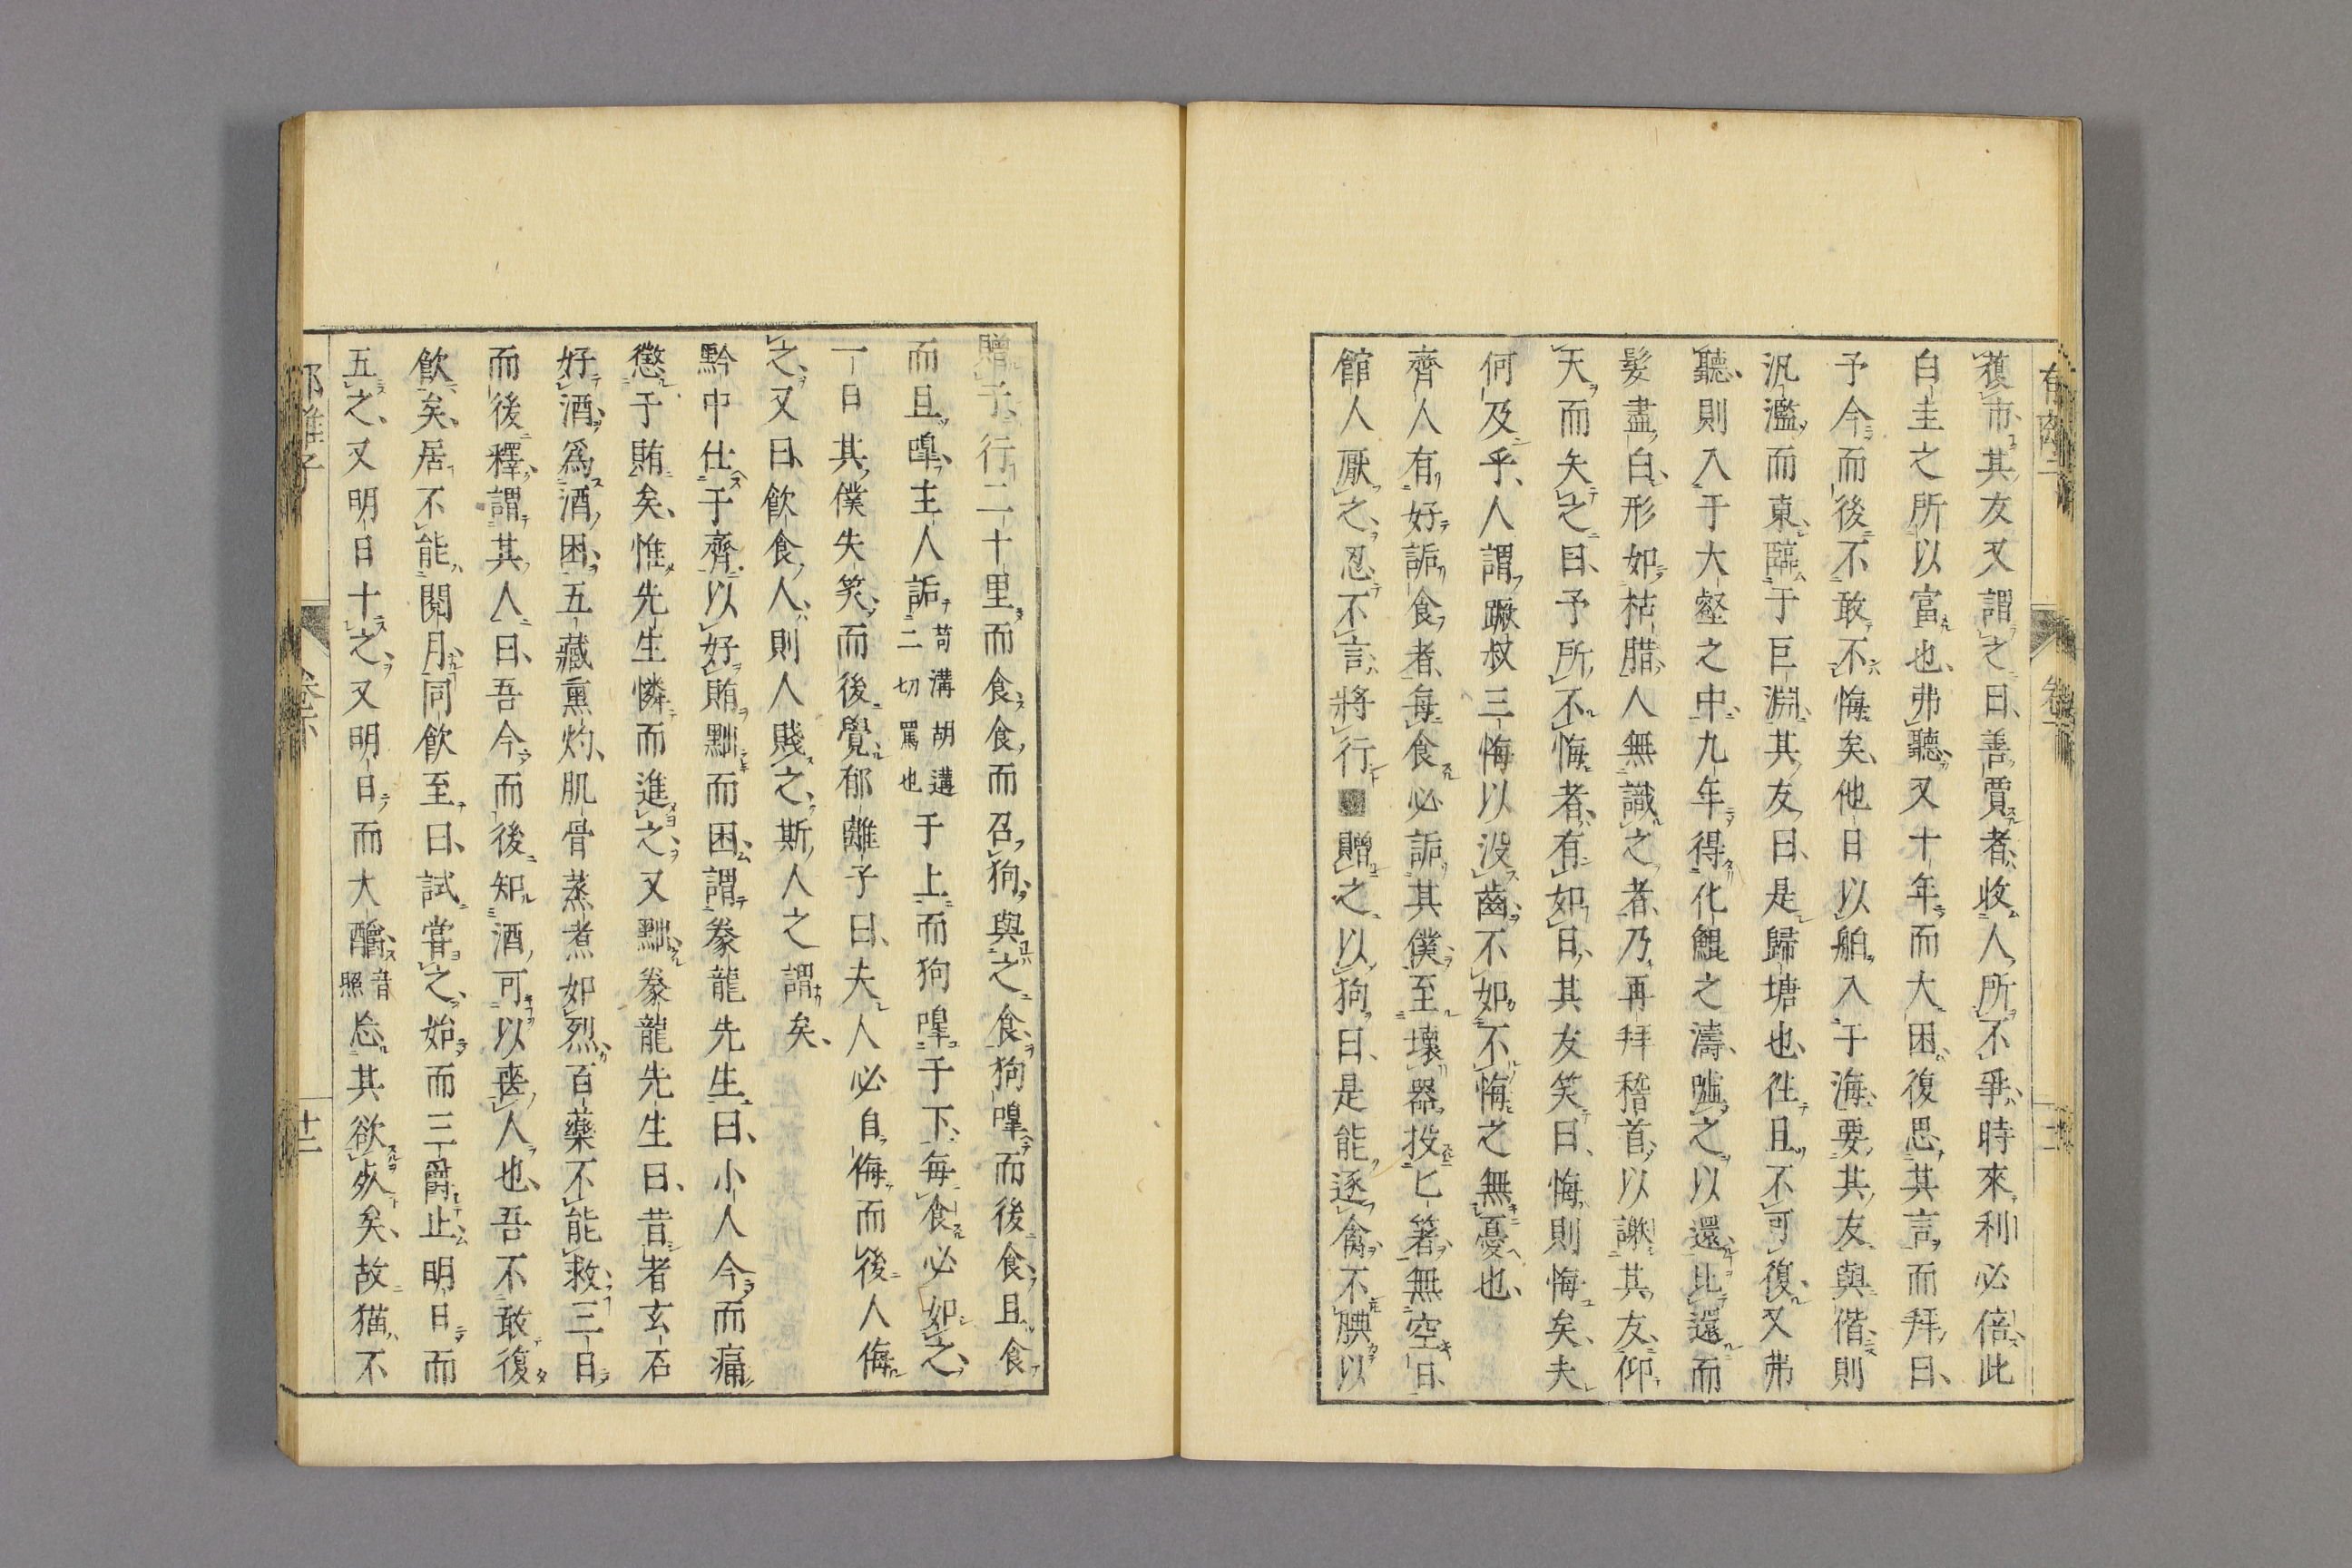 獲市其友又謂之曰善賈者收人所不爭時來利必倍此
白圭之所以富也弗聽又十年而大困復思其言而拜曰
予今而後不敢不悔矣他日以舶入于海要其友與偕則
汎濫而東臨于巨淵其友曰是歸塘也徃且不可復又弗
聽則入于大壑之中九年得化鯤之濤噓之以還比還而
髮盡白形如枯腊人無識之者乃再拜稽首以謝其友仰
天而矢之曰予所不悔者有如日其友笑曰悔則悔矣夫
何及乎人謂蹶叔三悔以没齒不如不悔之無憂也
齊人有好詬食者每食必詬其僕至壞器投匕箸無空日
館人厭之忍不言將行■贈之以狗曰是能逐禽不腆以
贈子行二十里而食食而召狗與之食狗嘷而後食且食
而且嘷主人詬苟溝胡遘二切罵也于上而狗嘷于下每食必如之
一日其僕失笑而後覺郁離子曰夫人必自侮而後人侮
之又曰飲食人則人賤之斯人之謂矣
黔中仕于齊以好賄黜而困謂豢龍先生曰小人今而痛
懲于賄矣惟先生憐而進之又黜豢龍先生曰昔者玄石
好酒爲酒困五藏熏灼肌骨蒸煮如烈百藥不能救三日
而後釋謂其人曰吾今而後知酒可以喪人也吾不敢復
飲矣居不能閱月同飲至曰試嘗之始而三爵止明日而
五之又明日十之又明日而大釂音照忘其欲死矣故猫不
郁離子